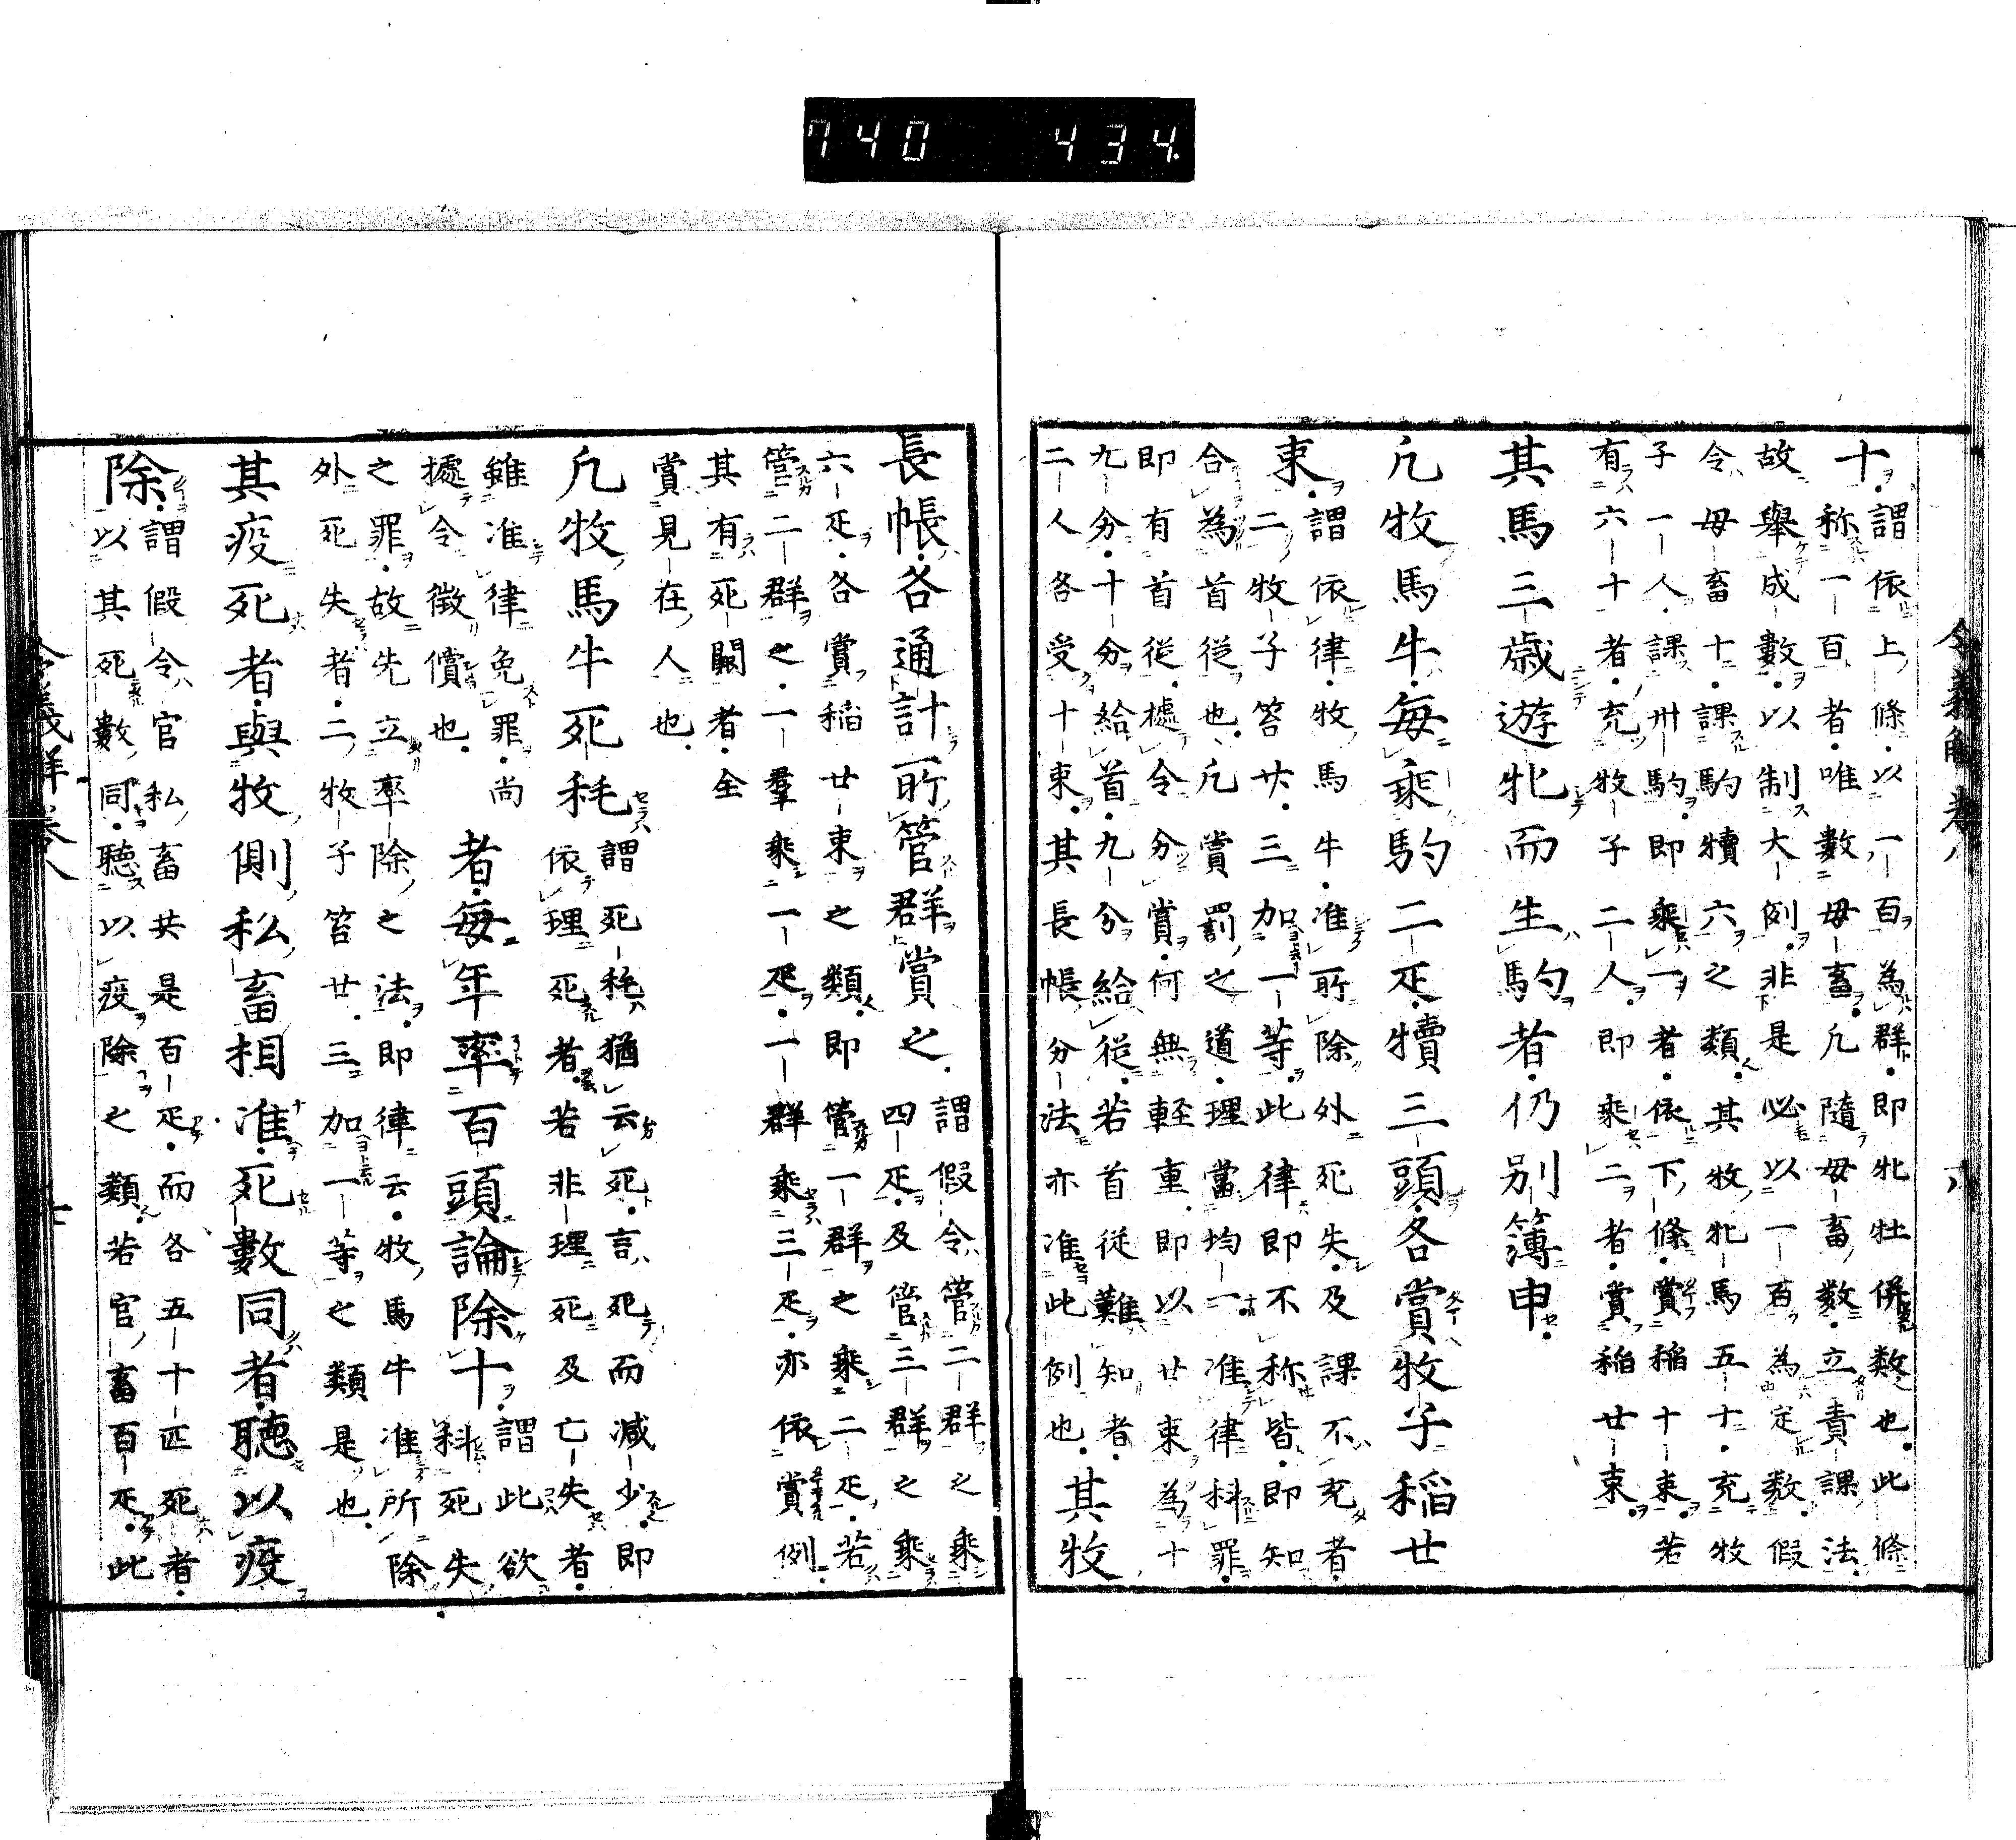 740 434.
十謂依上條以一百為群即牝牡併数也此條
称一百者唯數母畜凡隨母畜數立責課法
故舉成數以制大例非是必以一百為定数假
令母畜十課駒犢六之類其牧牝馬五十充牧
子一人課卅駒即乘一者依下條賞稲十束若
有六十者充牧子二人即乘二者賞稲廿束
其馬三歳遊牝而生駒者仍別簿申
凡牧馬牛每乘駒二疋犢三頭各賞牧子稲廿
束謂依律牧馬牛准所除外死失及課不充者
二牧子笞廿三加一等此律即不称皆即知
合為首從也凡賞罰之道理當均一准律科罪
即有首從據令分賞何無輕重即以廿束為十
九分十分給首九分給從若首從難知者
二人各受十束其長帳分法亦准此例也其牧
長帳各通計所管群賞之謂假令管二群之乘
四疋及管三群之乘
六疋各賞稲廿束之類即管一群之乘二疋若
管二群之一羣乘一疋一群乘三疋亦依賞例
其有死闕者全
賞見在人也
凡牧馬牛死耗謂死耗猶云死言死而减少即
依理死者若非理死及亡失者
雖准律免罪尚
據令徵償也
者每年率百頭論除十謂此欲
科死失
之罪故先立率除之法即律云牧馬牛准所除
外死失者二牧子笞廿三加一等之類是也
其疫死者與牧側私畜相准死數同者聴以疫
除謂假令官私畜共是百疋而各五十匹死者
以其死數同聴以疫除之類若官畜百疋此